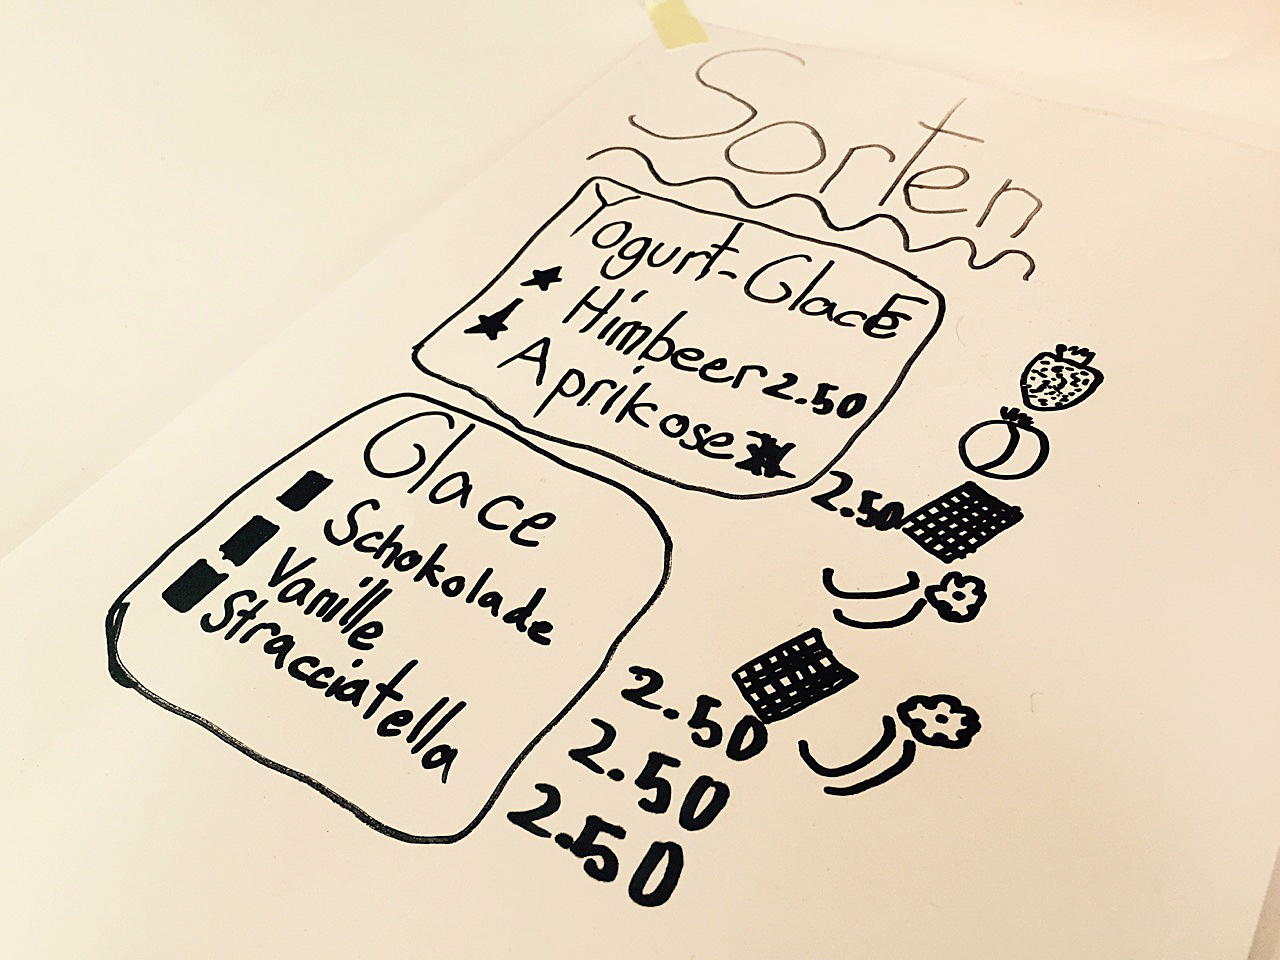 Sorten
Yogurt-GlacE
Himbeer 2.50
Aprikose 2.50
Glace
Schokolade 2.50
Vanille 2.50
Stracciatella 2.50